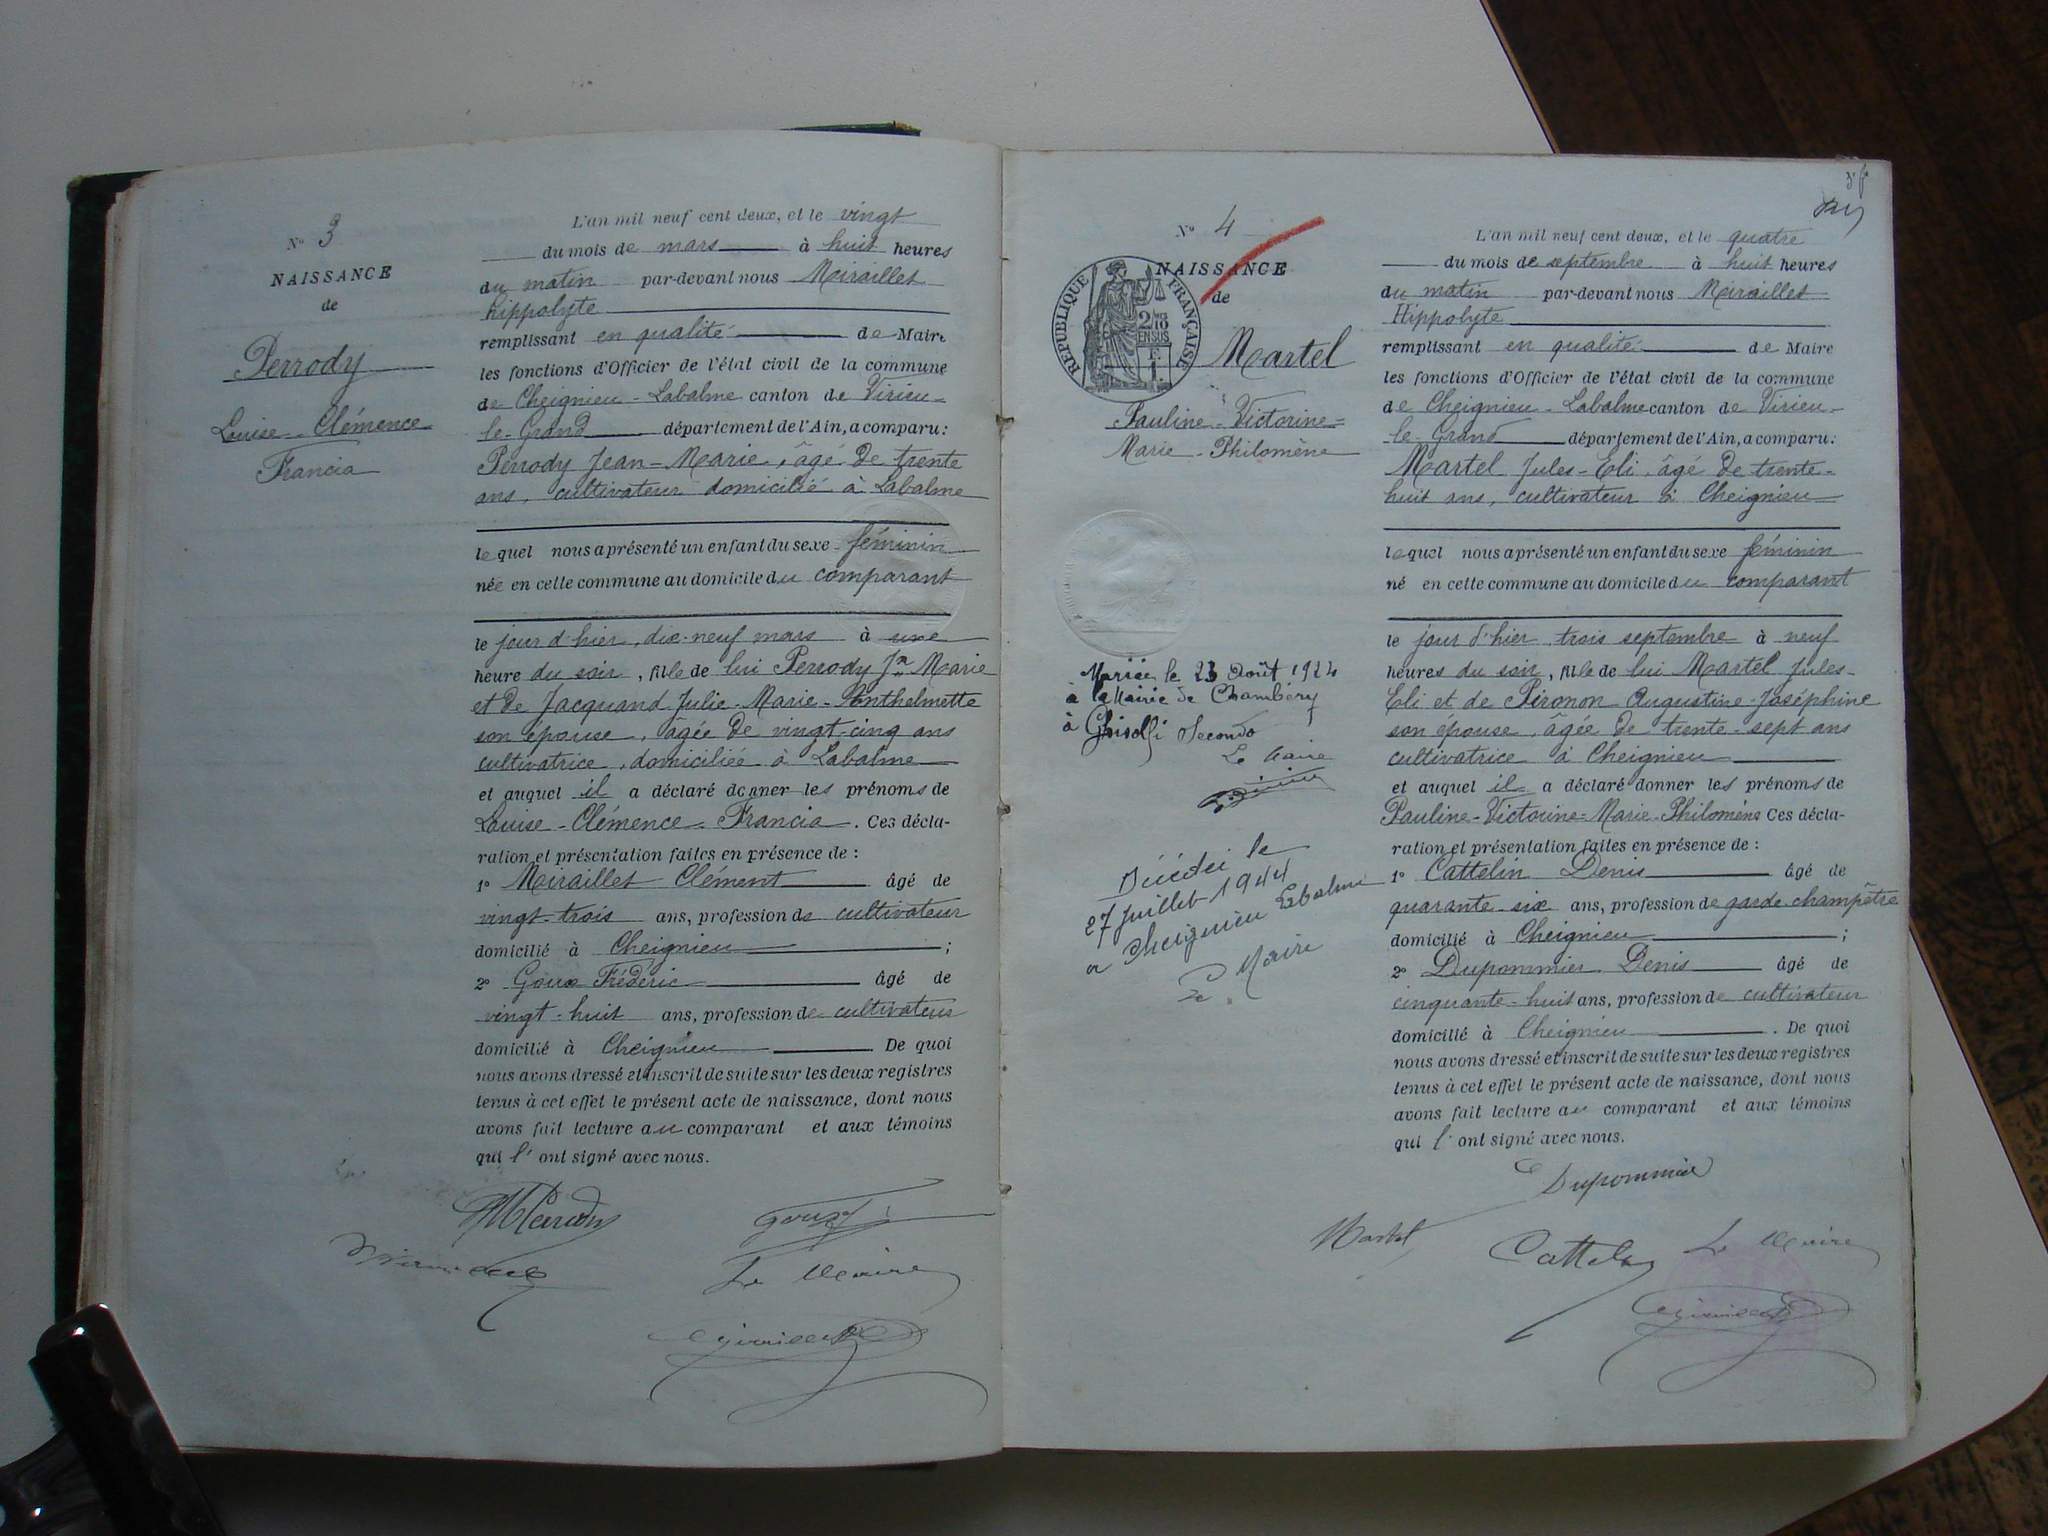 N° 3
NAISSANCE
de
Perrody
Louise-Clémence
Francia
L'an mil neuf cent deux, et le vingt
du mois de mars à huit heures
du matin par-devant nous Miraillet
hippolyte
remplissant en qualité de Maire
les fonctions d'Officier de l'état civil de la commune
de Cheignieu-Labalme canton de Virieu-
le-Grand département de l'Ain, a comparu:
Perrody Jean-Marie, âgé de trente
ans, cultivateur domicilié à Labalme
lequel nous a présenté un enfant du sexe féminin
née en cette commune au domicile du comparant
le jour d'hier, dix-neuf mars à une
heure du soir, fille de lui Perrody Jn Marie
et de Jacquand Julie-Marie-Ponthelmette
son épouse, âgée de vingt-cinq ans
cultivatrice, domiciliée à Labalme
et auquel il a déclaré donner les prénoms de
Louise-Clémence-Francia. Ces décla-
ration et présentation faites en présence de :
1° Miraillet Clément âgé de
vingt-trois ans, profession de cultivateur
domicilié à Cheignieu ;
2° Goux Frédéric âgé de
vingt-huit ans, profession de cultivateur
domicilié à Cheignieu. De quoi
nous avons dressé et inscrit de suite sur les deux registres
tenus à cet effet le présent acte de naissance, dont nous
avons fait lecture au comparant et aux témoins
qui l'ont signé avec nous.
Goux
Le Maire
N° 4
NAISSANCE
de
RÉPUBLIQUE FRANÇAISE
2/10 EN SUS
Martel
Pauline-Victorine=
Marie-Philomène
Mariée le 23 Août 1924
à la Mairie de Chambéry
à Ghisolfi Secondo
Le Maire
Décédée le
27 juillet 1944
à Cheignieu Labalme
Le Maire
L'an mil neuf cent deux, et le quatre
du mois de septembre à huit heures
du matin par-devant nous Miraillet
Hippolyte
remplissant en qualité de Maire
les fonctions d'Officier de l'état civil de la commune
de Cheignieu-Labalme canton de Virieu-
le-Grand département de l'Ain, a comparu:
Martel Jules-Eli, âgé de trente-
huit ans, cultivateur à Cheignieu
lequel nous a présenté un enfant du sexe féminin
né en cette commune au domicile du comparant
le jour d'hier, trois septembre à neuf
heures du soir, fille de lui Martel Jules-
Eli et de Pironon Augustine-Joséphine
son épouse, âgée de trente-sept ans
cultivatrice à Cheignieu
et auquel il a déclaré donner les prénoms de
Pauline-Victorine=Marie-Philomène Ces décla-
ration et présentation faites en présence de :
1° Cattelin Denis âgé de
quarante-six ans, profession de garde-champêtre
domicilié à Cheignieu ;
2° Dupommier Denis âgé de
cinquante-huit ans, profession de cultivateur
domicilié à Cheignieu. De quoi
nous avons dressé et inscrit de suite sur les deux registres
tenus à cet effet le présent acte de naissance, dont nous
avons fait lecture au comparant et aux témoins
qui l'ont signé avec nous.
Dupommier
Martel
Cattelin
Le Maire